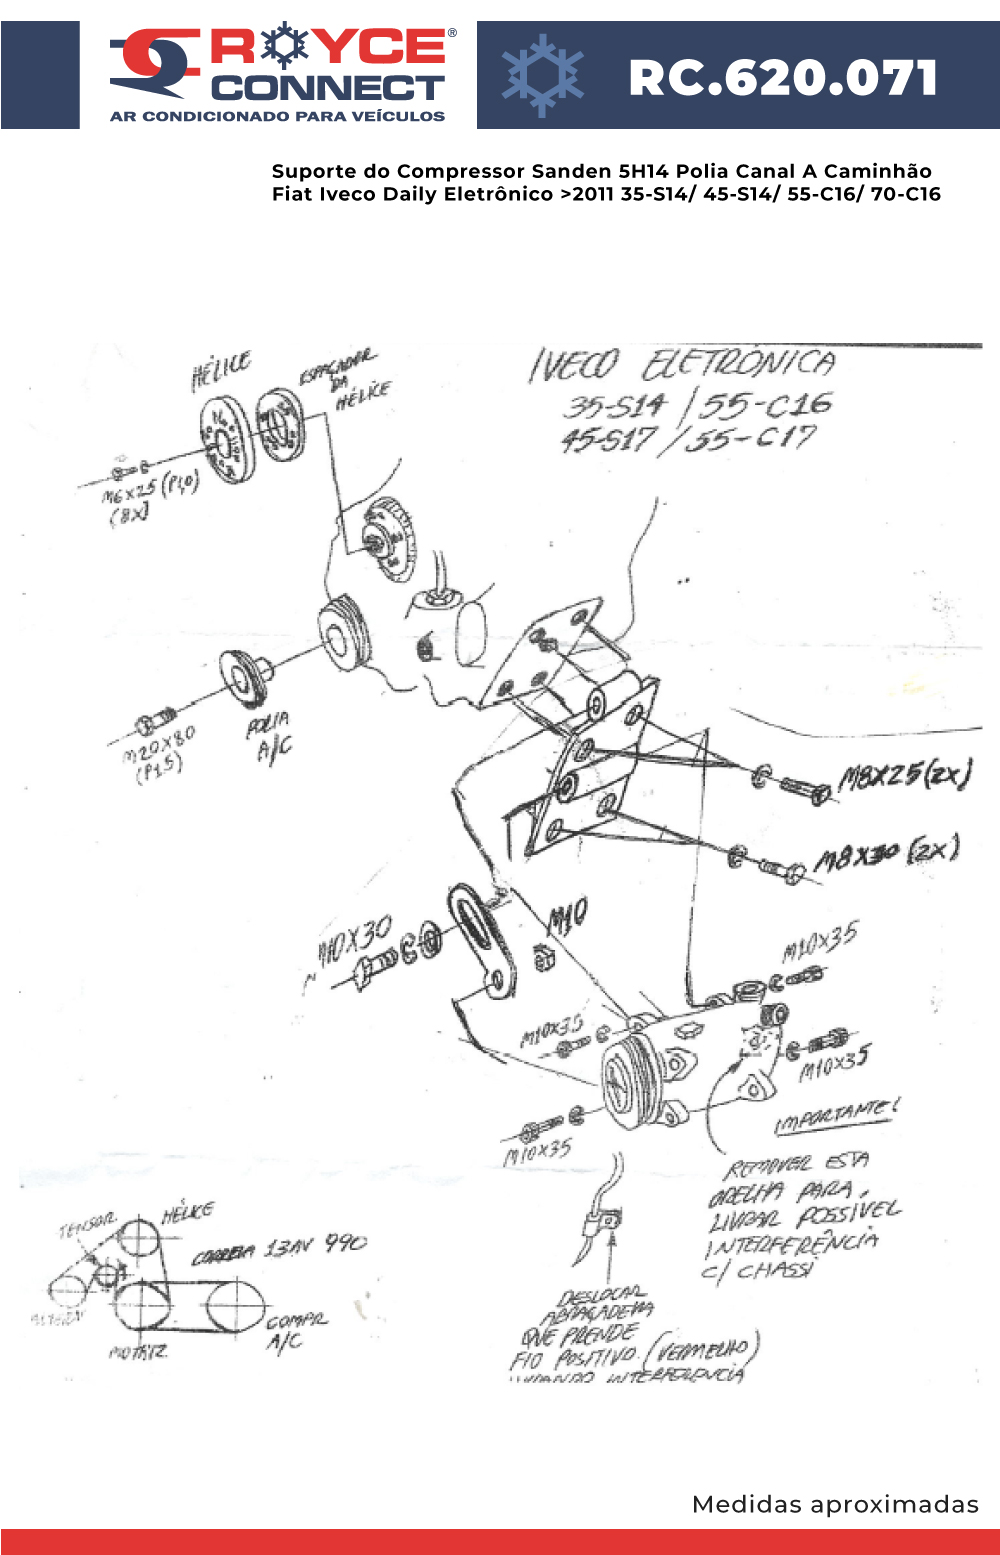 ROYCE®
CONNECT
AR CONDICIONADO PARA VEÍCULOS
RC.620.071
Suporte do Compressor Sanden 5H14 Polia Canal A Caminhão
Fiat Iveco Daily Eletrônico >2011 35-S14/ 45-S14/ 55-C16/ 70-C16
IVECO ELETRÔNICA
35-S14 / 55-C16
45-S17 / 55-C17
HÉLICE
ESPAÇADOR
DA
HÉLICE
M6X25 (P1,0)
(8X)
POLIA
A/C
M20X80
(P1,5)
M8X25 (2X)
M8X30 (2X)
M10X30
M10
M10X35
M10X35
M10X35
M10X35
IMPORTANTE!
REMOVER ESTA
ORELHA PARA
LIVRAR POSSÍVEL
INTERFERÊNCIA
C/ CHASSI
TENSOR
HÉLICE
CORREIA 13AV 990
ALTERN
MOTRIZ
COMPR
A/C
DESLOCAR
ABRAÇADEIRA
QUE PRENDE
FIO POSITIVO. (VERMELHO)
LIVRANDO INTERFERENCIA
Medidas aproximadas